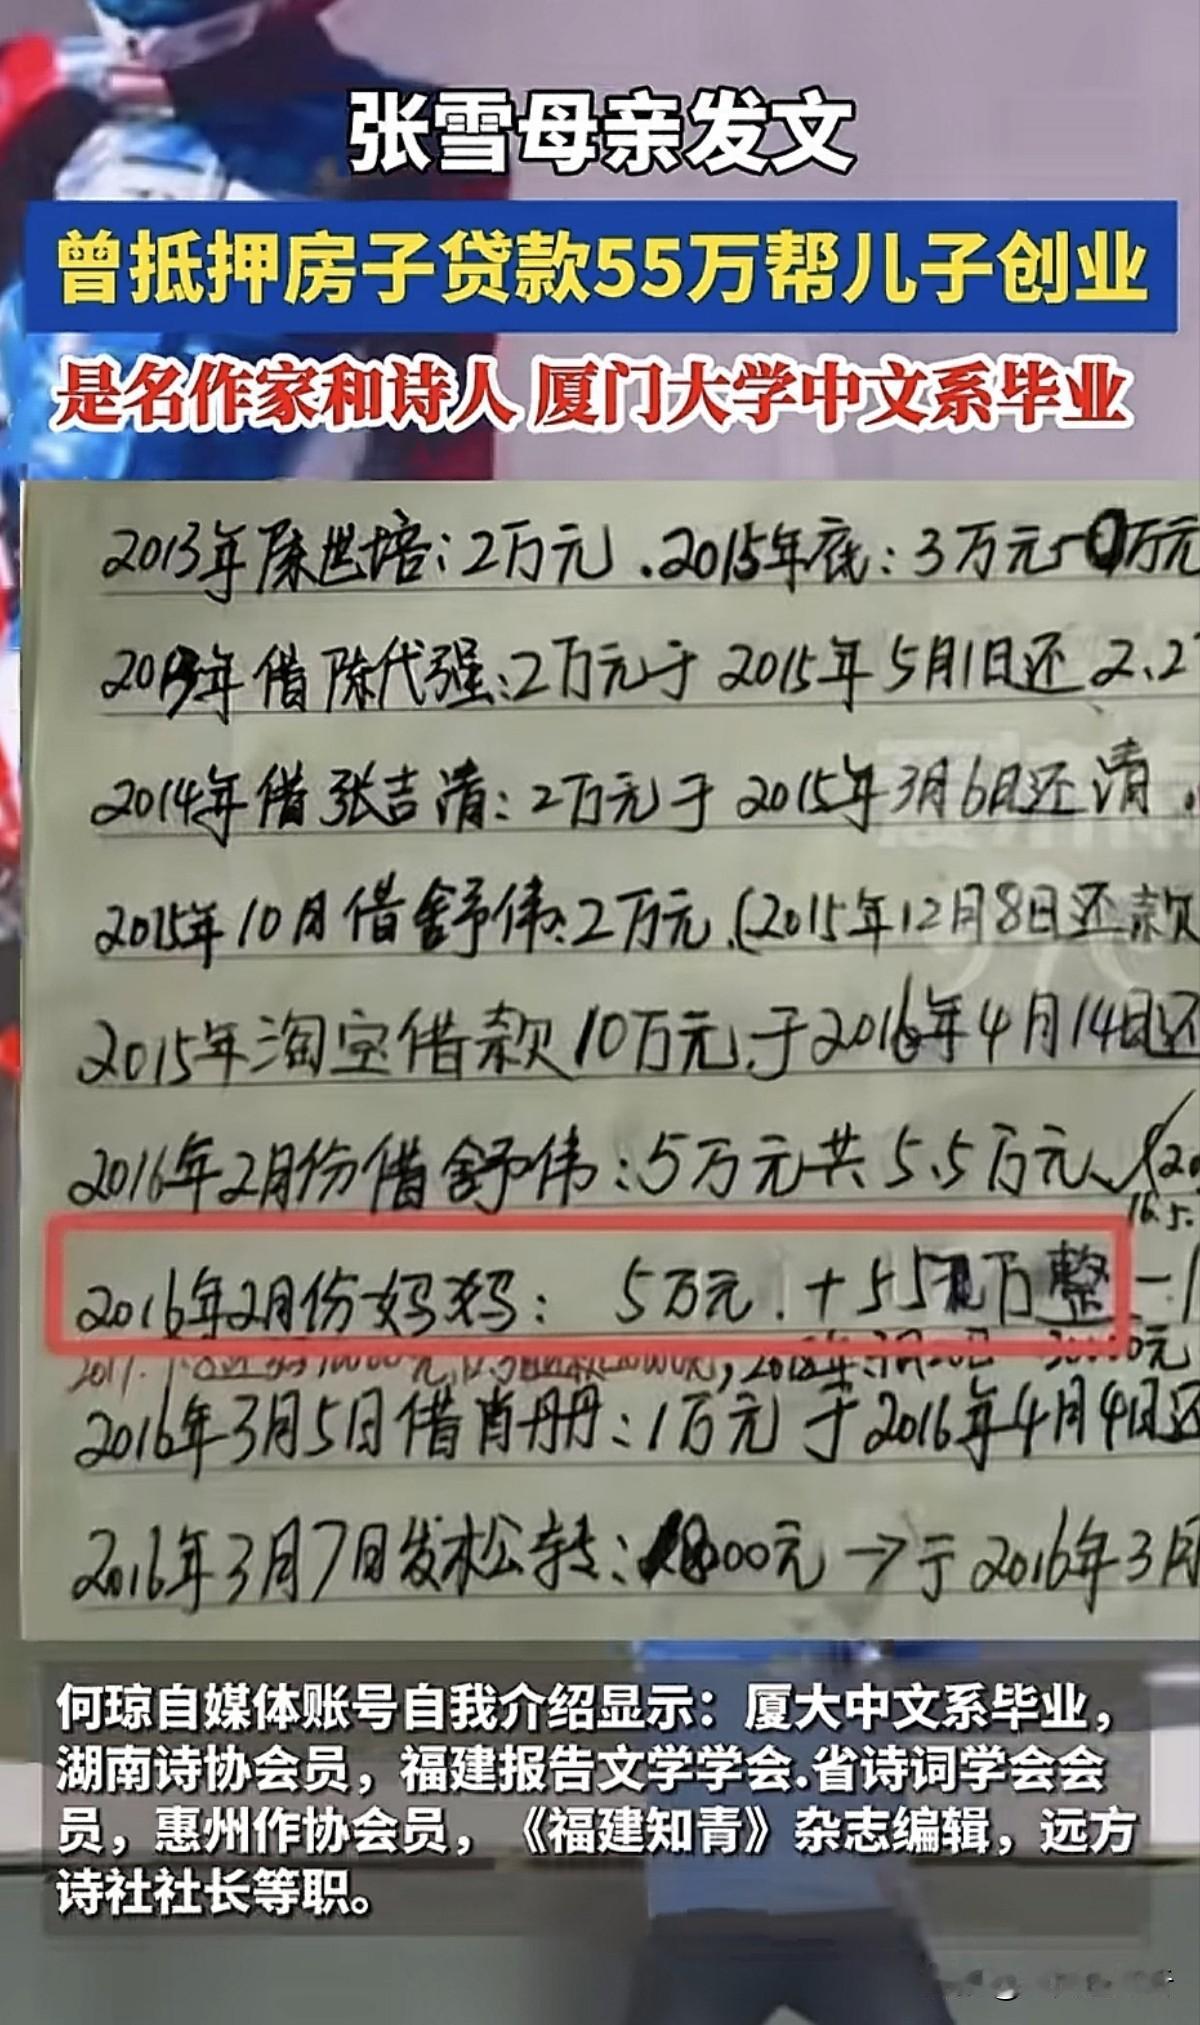 张雪母亲发文
曾抵押房子贷款55万帮儿子创业
是名作家和诗人 厦门大学中文系毕业
2013年陈世培：2万元.2015年底：3万元 万元
2013年借陈代强：2万元于2015年5月1日还2.2
2014年借张吉清：2万元于2015年3月6日还清.
2015年10月借舒伟：2万元.(2015年12月8日还款
2015年淘宝借款10万元.于2016年4月14日还
2016年2月份借舒伟：5万元共5.5万元.
16.5.
2016年2月份妈妈： 5万元.+55万整 -1
2018年 月20日 30000元
2016年3月5日借肖丹丹：1万元于2016年4月4日还
2016年3月7日发松转： 000元→于2016年3月
何琼自媒体账号自我介绍显示：厦大中文系毕业，
湖南诗协会员，福建报告文学学会.省诗词学会会
员，惠州作协会员，《福建知青》杂志编辑，远方
诗社社长等职。